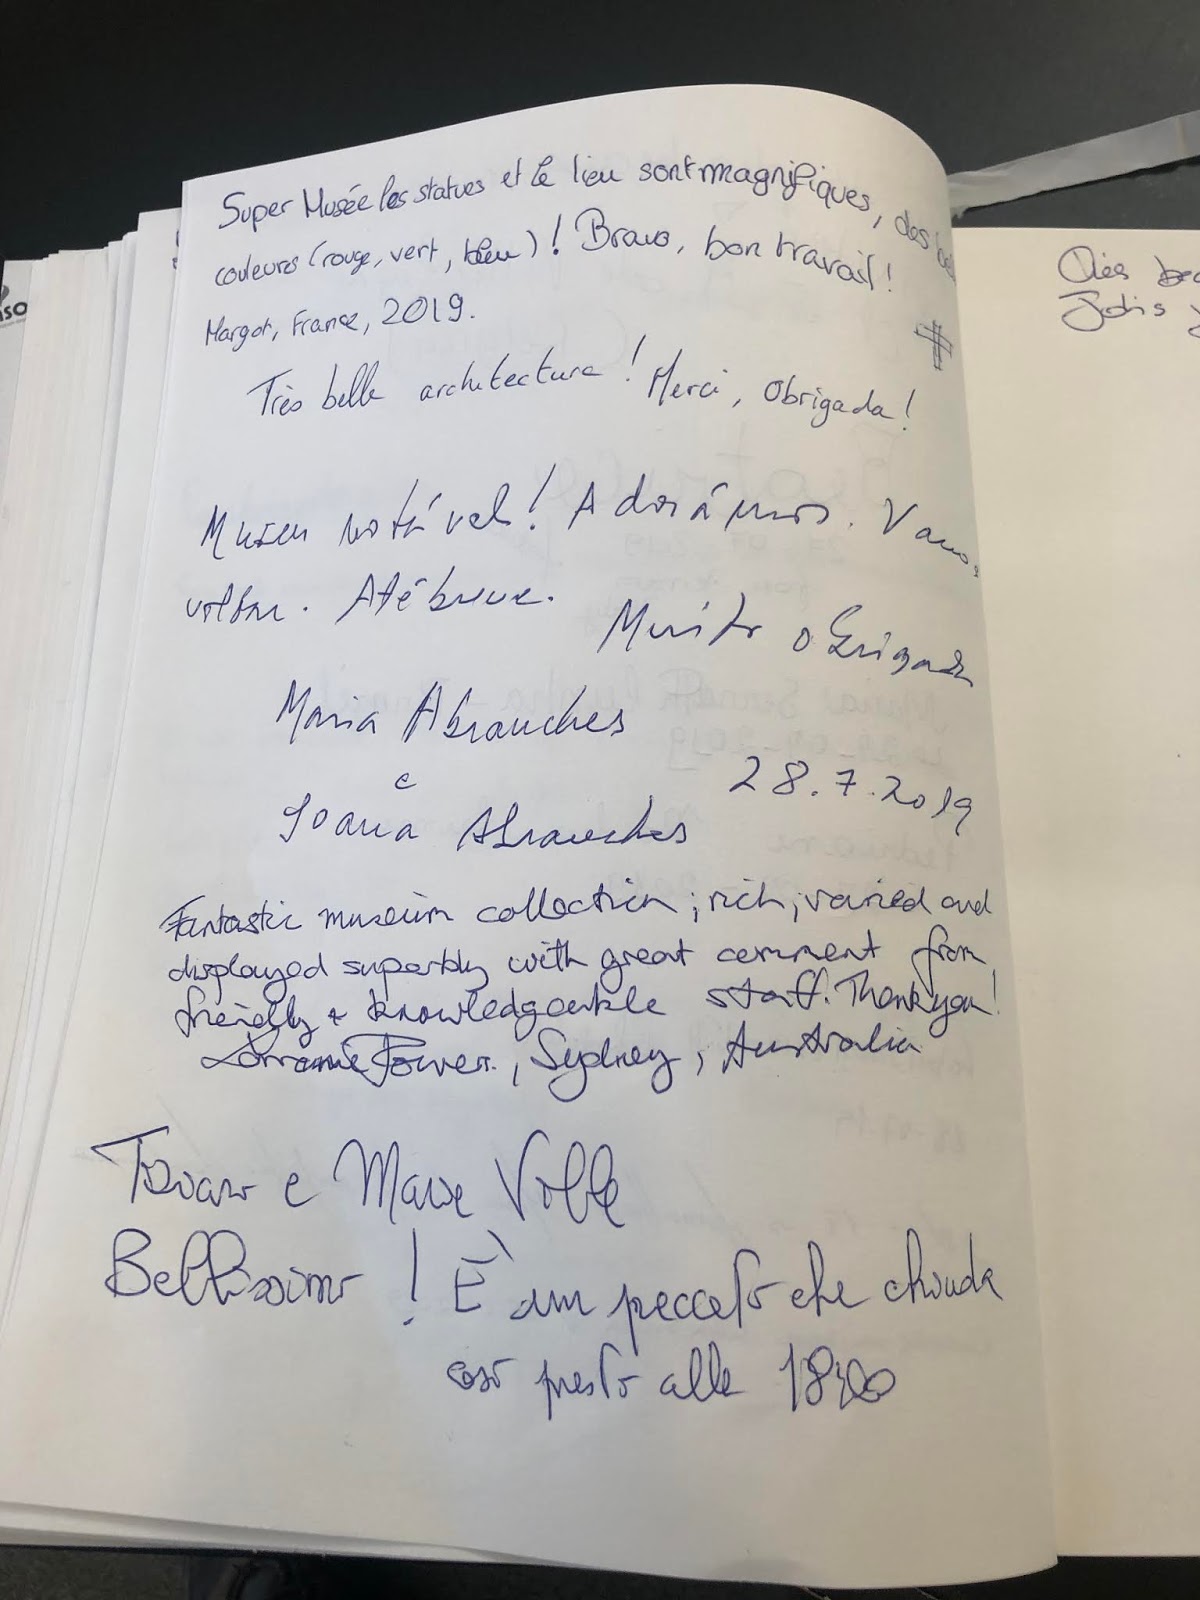 Super Musée les statues et le lieu sont magnifiques, des
couleurs (rouge, vert, bleu)! Bravo, bon travail!
Margot, France, 2019.
Très belle architecture! Merci, Obrigada!
Museu notável! Adorámos. Vamos
voltar. Até breve.
Muito obrigada
Maria Abranches
e
Joana Abranches
28.7.2019
Fantastic museum collection; rich, varied and
displayed superbly with great comment from
friendly & knowledgeable staff. Thank you!
Lorraine Power, Sydney, Australia
e
Bellissimo! È un peccato che chiuda
così presto alle